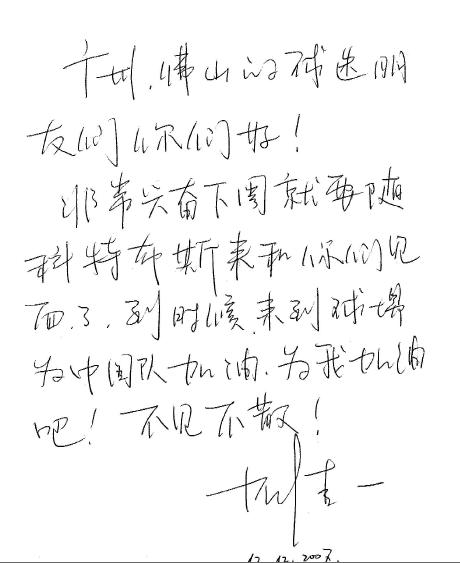 广州、佛山的球迷朋
友们你们好！
非常兴奋下周就要随
科特布斯来和你们见
面了，到时候来到球场
为中国队加油，为我加油
吧！不见不散！
邵佳一
12.12.2007.